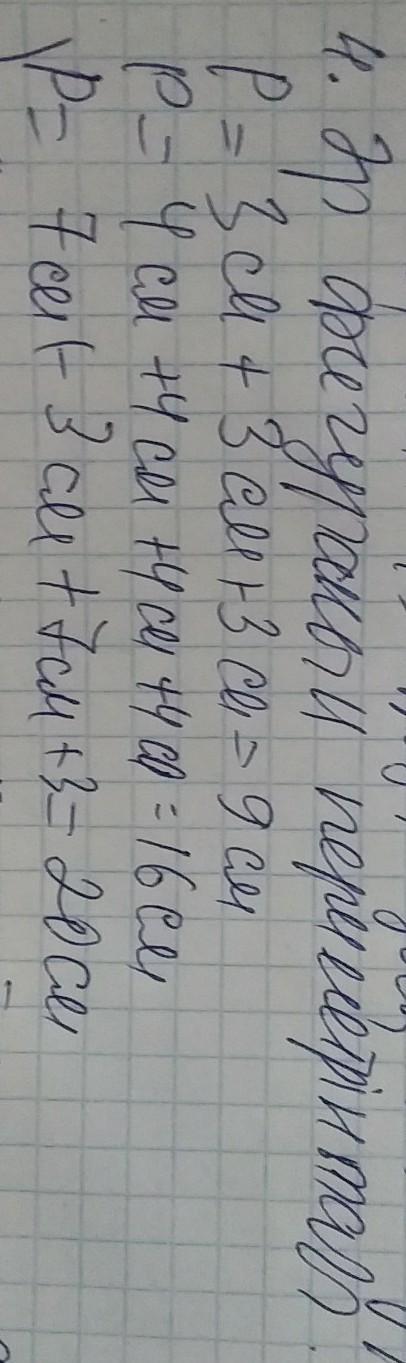 4. Әр фигураның периметрін тап.
P = 3 см + 3 см + 3 см = 9 см
P = 4 см + 4 см + 4 см + 4 см = 16 см
P = 7 см + 3 см + 7 см + 3 = 20 см